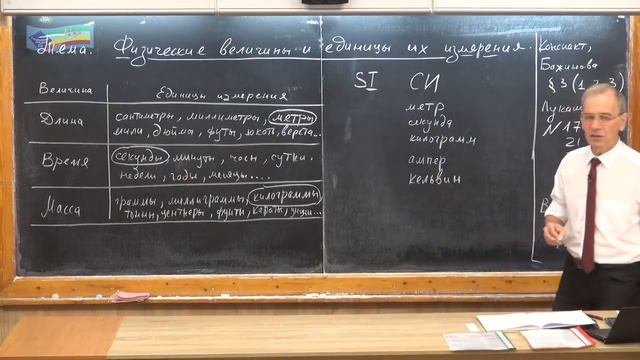 Тема. Физические величины и единицы их измерения.
Величина
Единицы измерения
Длина
сантиметры, миллиметры, метры
мили, дюймы, футы, локоть, верста...
Время
секунды минуты, часы, сутки.
недели, годы, месяцы....
Масса
граммы, миллиграммы, килограммы
тонны, центнеры, фунты, караты, унции...
SI СИ
метр
секунда
килограмм
ампер
кельвин
Конспект,
Божинова
§3(1,2,3)
Лукаш
N 17